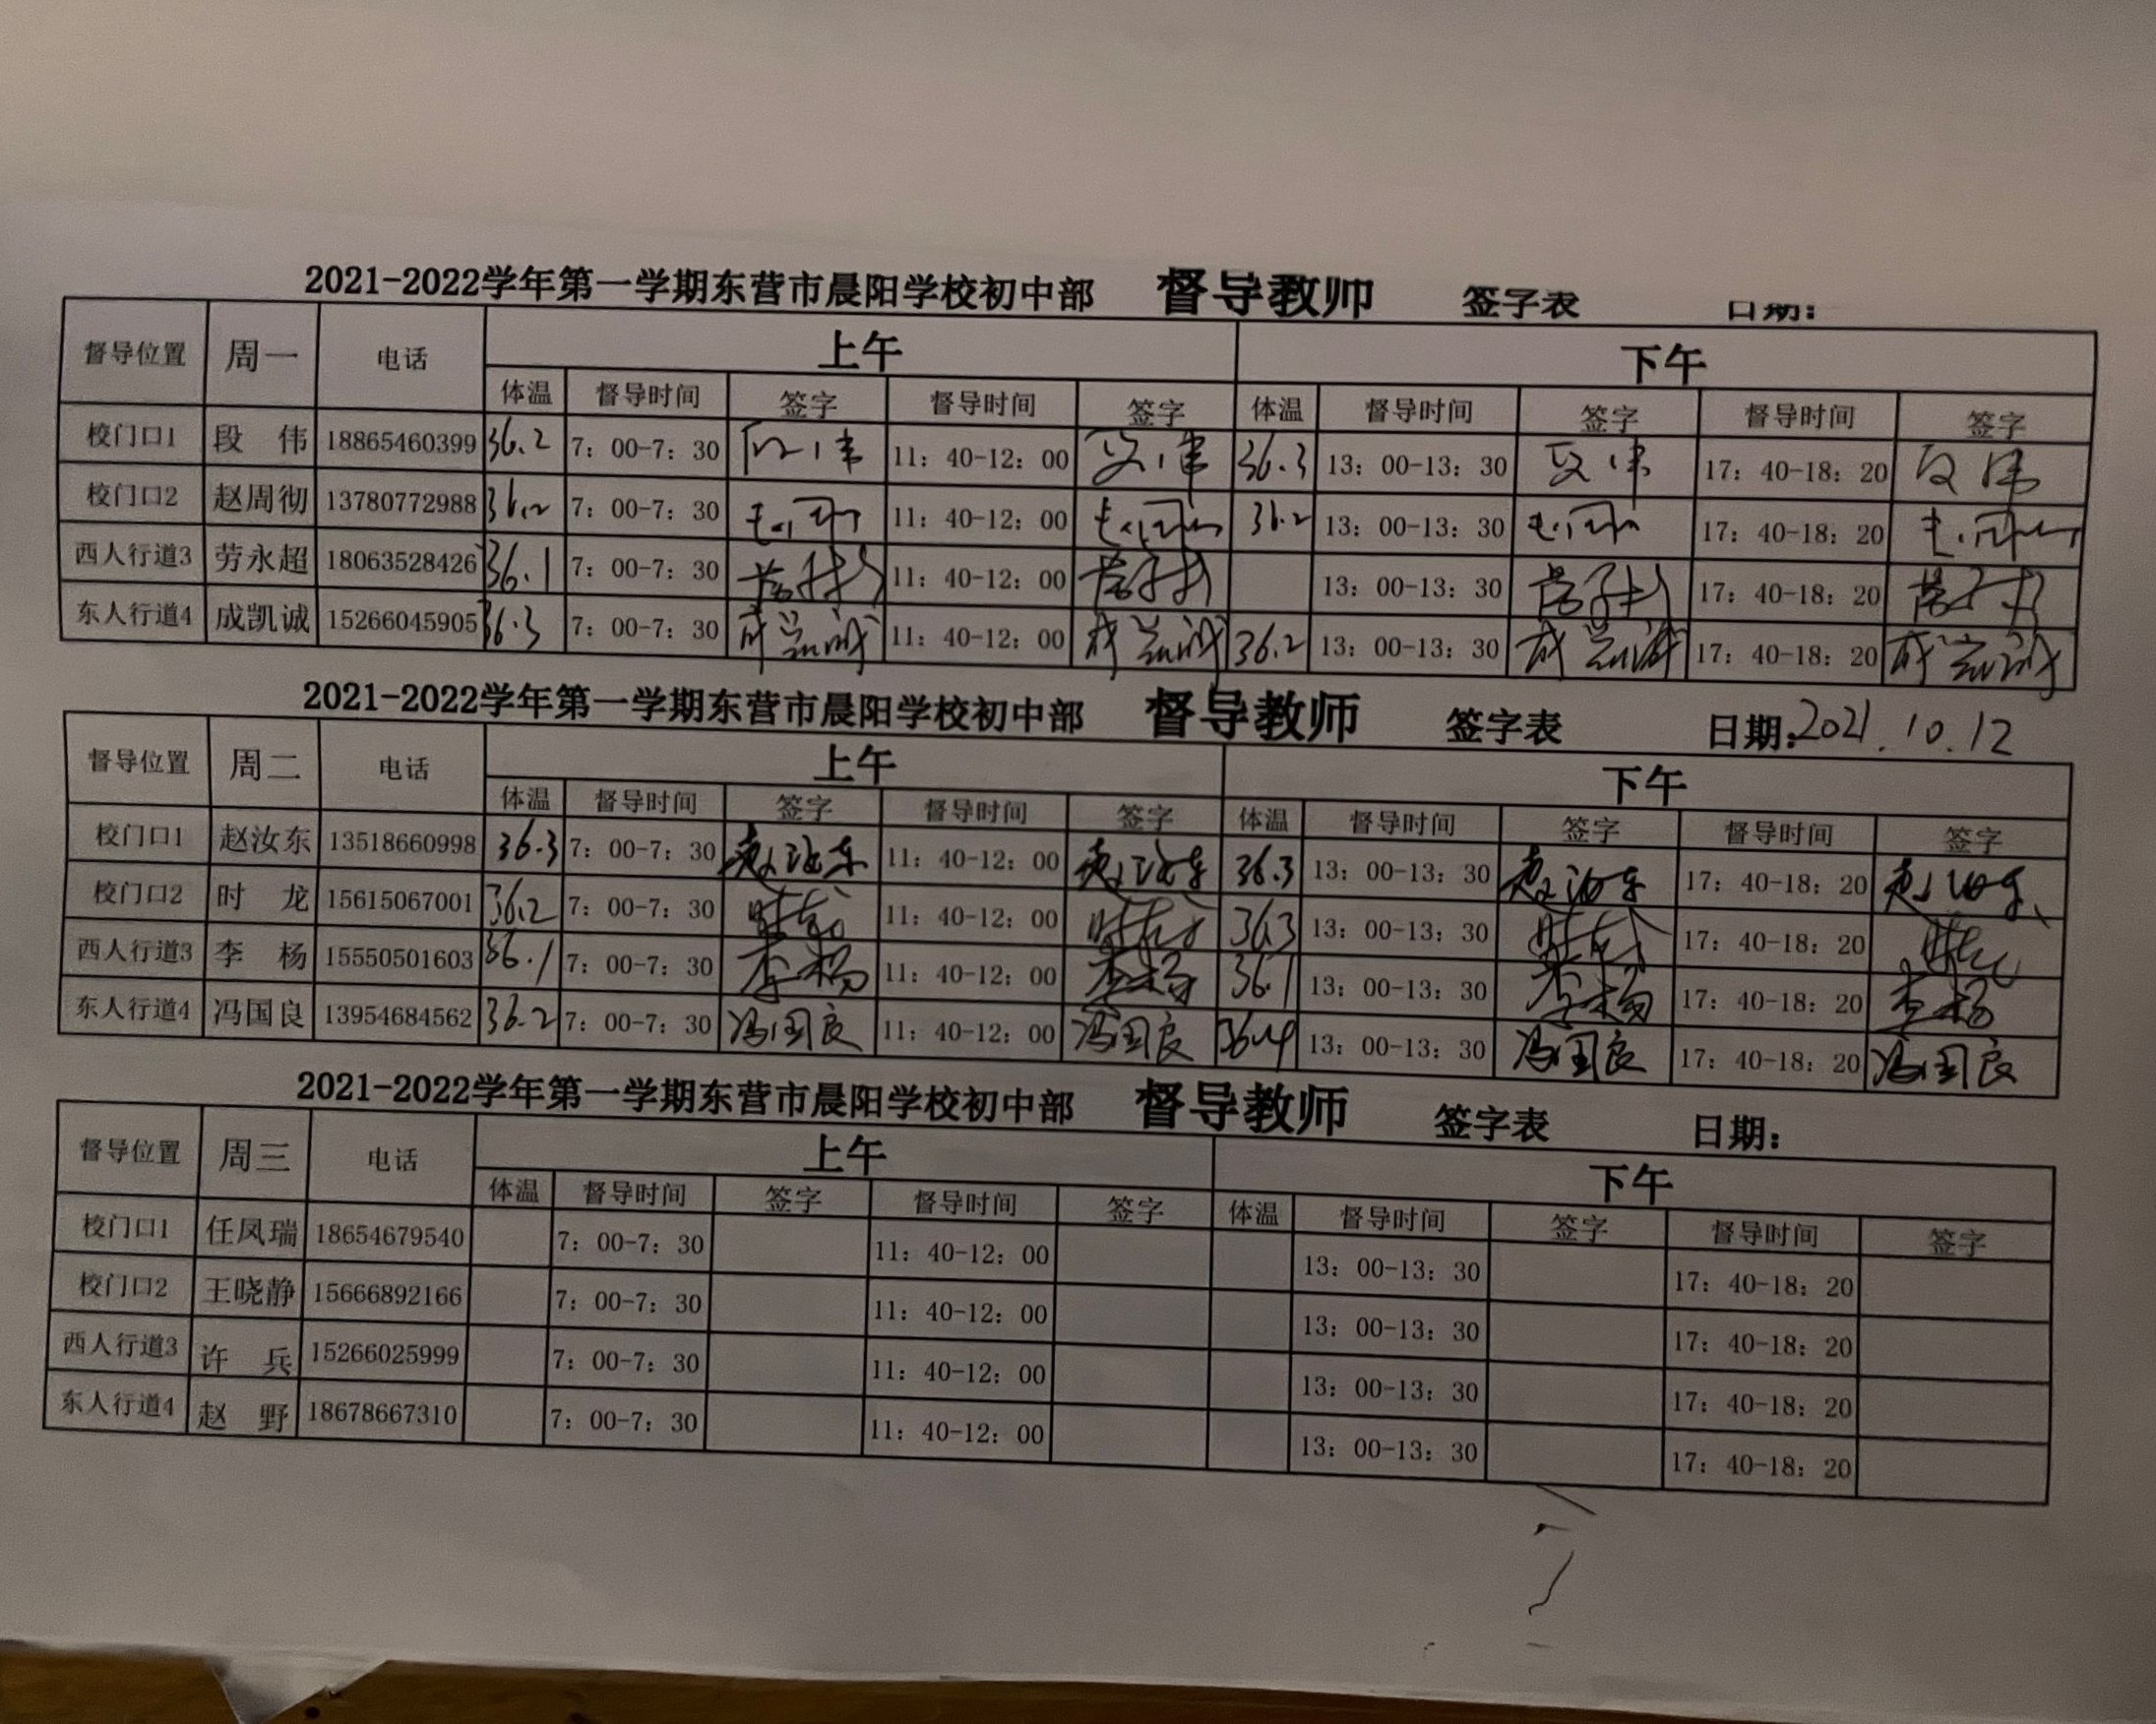 2021-2022学年第一学期东营市晨阳学校初中部 督导教师 签字表 日期:
督导位置 周一 电话 上午 下午
体温 督导时间 签字 督导时间 签字 体温 督导时间 签字 督导时间 签字
校门口1 段 伟 18865460399 36.2 7: 00-7: 30 段伟 11: 40-12: 00 段伟 36.3 13: 00-13: 30 段伟 17: 40-18: 20 段伟
校门口2 赵周彻 13780772988 36.2 7: 00-7: 30 11: 40-12: 00 36.2 13: 00-13: 30 17: 40-18: 20
西人行道3 劳永超 18063528426 36.1 7: 00-7: 30 11: 40-12: 00 13: 00-13: 30 17: 40-18: 20
东人行道4 成凯诚 15266045905 36.3 7: 00-7: 30 成凯诚 11: 40-12: 00 成凯诚 36.2 13: 00-13: 30 成凯诚 17: 40-18: 20 成凯诚
2021-2022学年第一学期东营市晨阳学校初中部 督导教师 签字表 日期:2021.10.12
督导位置 周二 电话 上午 下午
体温 督导时间 签字 督导时间 签字 体温 督导时间 签字 督导时间 签字
校门口1 赵汝东 13518660998 36.3 7: 00-7: 30 赵汝东 11: 40-12: 00 赵汝东 36.3 13: 00-13: 30 赵汝东 17: 40-18: 20 赵汝东
校门口2 时 龙 15615067001 36.2 7: 00-7: 30 时龙 11: 40-12: 00 时龙 36.3 13: 00-13: 30 时龙 17: 40-18: 20 时龙
西人行道3 李 杨 15550501603 36.1 7: 00-7: 30 李杨 11: 40-12: 00 李杨 36.1 13: 00-13: 30 李杨 17: 40-18: 20 李杨
东人行道4 冯国良 13954684562 36.2 7: 00-7: 30 冯国良 11: 40-12: 00 冯国良 36.4 13: 00-13: 30 冯国良 17: 40-18: 20 冯国良
2021-2022学年第一学期东营市晨阳学校初中部 督导教师 签字表 日期:
督导位置 周三 电话 上午 下午
体温 督导时间 签字 督导时间 签字 体温 督导时间 签字 督导时间 签字
校门口1 任凤瑞 18654679540 7: 00-7: 30 11: 40-12: 00 13: 00-13: 30 17: 40-18: 20
校门口2 王晓静 15666892166 7: 00-7: 30 11: 40-12: 00 13: 00-13: 30 17: 40-18: 20
西人行道3 许 兵 15266025999 7: 00-7: 30 11: 40-12: 00 13: 00-13: 30 17: 40-18: 20
东人行道4 赵 野 18678667310 7: 00-7: 30 11: 40-12: 00 13: 00-13: 30 17: 40-18: 20